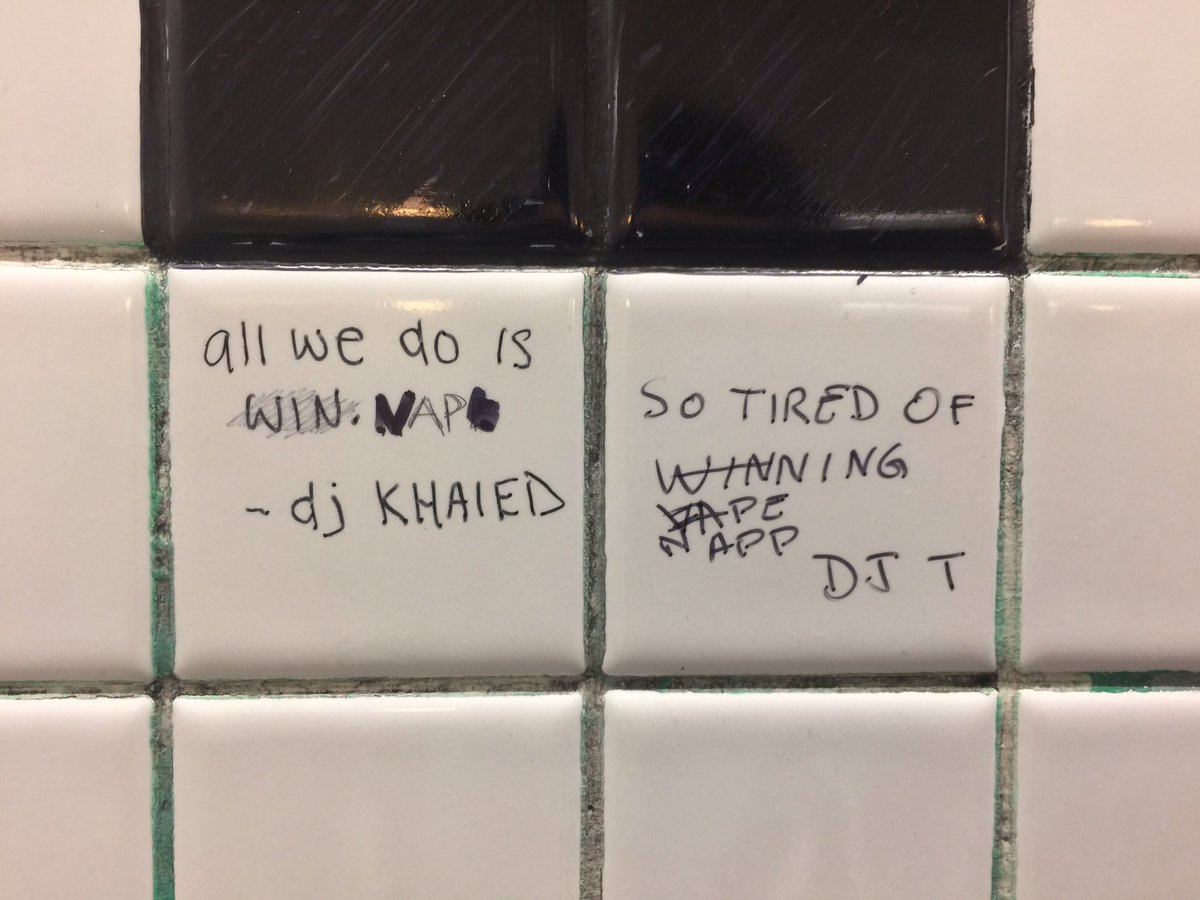 all we do is
WIN. NAP
~ dj KHAlED
SO TIRED OF
WINNING
VAPE
NAPP
DJ T